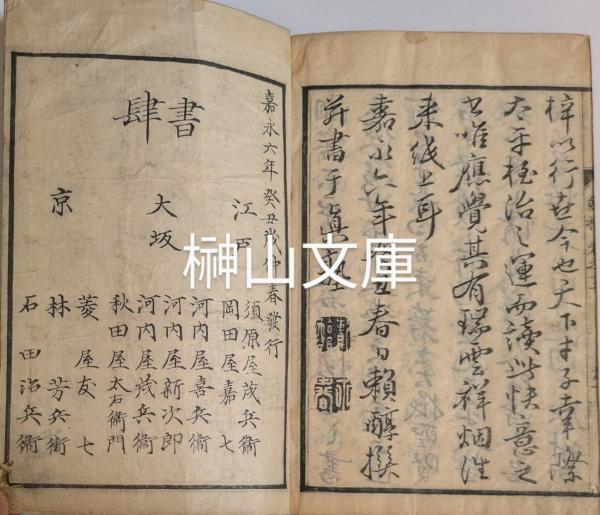 梓以行世今也天下才子幸際
太平極治之運而讀此快意之
書唯應覺其有瑞雲祥烟往
来紙上耳
嘉永六年癸丑春日賴醇撰
并書于真塾
嘉永六年癸丑歲仲春發行
書肆
江戸
須原屋茂兵衛
岡田屋嘉七
大坂
河内屋喜兵衛
河内屋新次郎
河内屋茂兵衛
秋田屋太右衛門
京
菱屋友七
林芳兵衛
石田治兵衛
榊山文庫